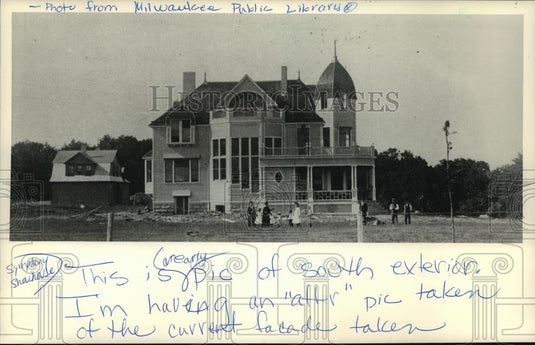 - Photo from Milwaukee Public Library ©
HISTORIC IMAGES
Symphony
Showhouse
This is (an early) pic of south exterior.
I'm having an "after" pic taken
of the current facade taken